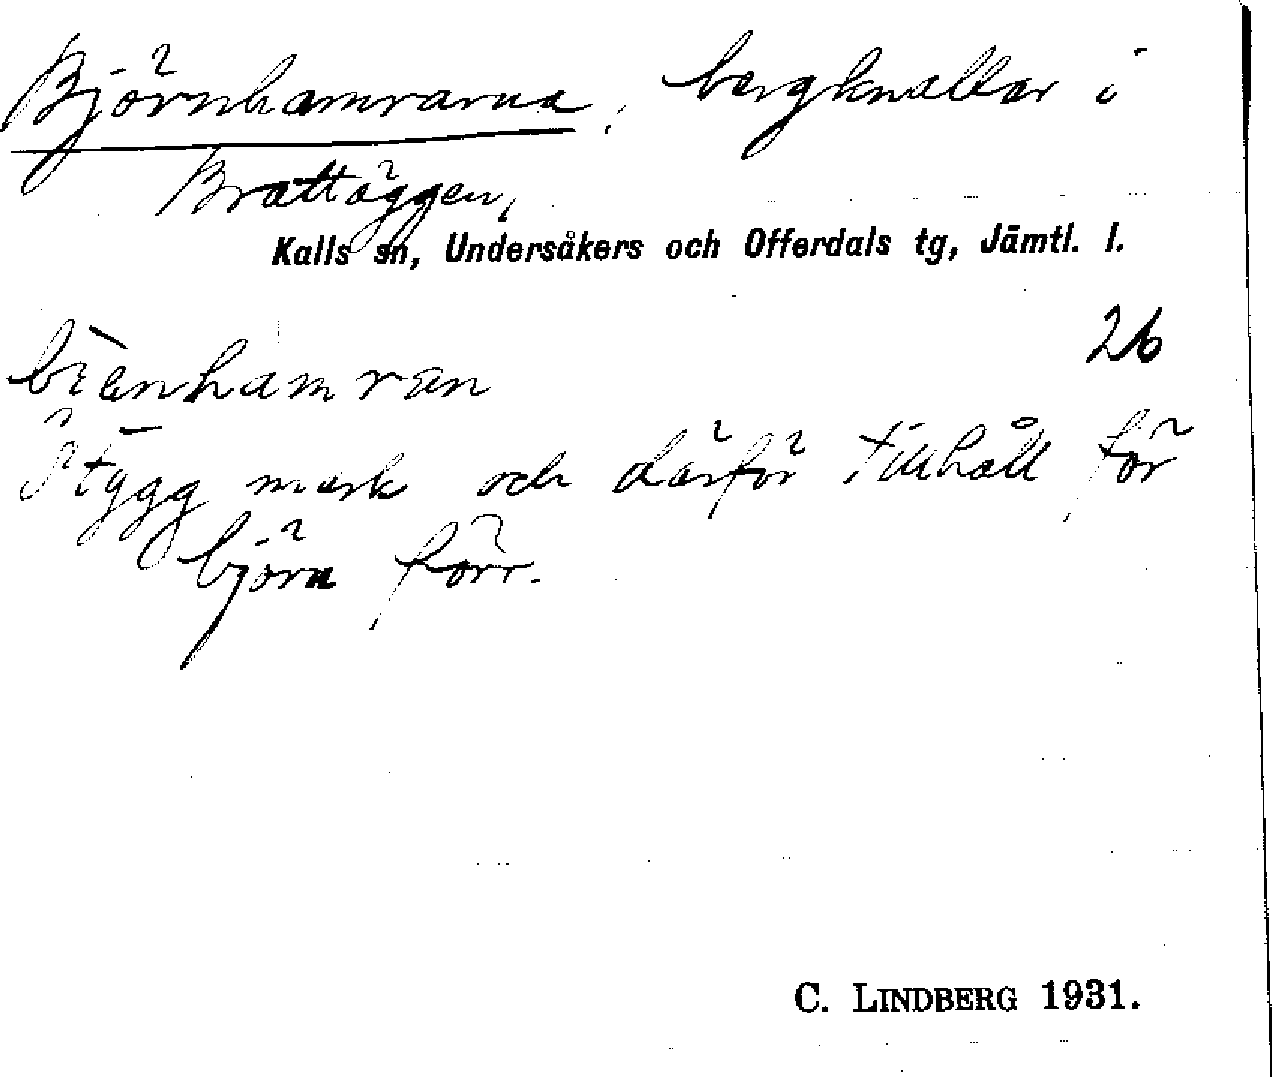 Björnhamrarna, bergknallar i
Brattäggen,
Kalls sn, Undersåkers och Offerdals tg, Jämtl. l.
26
bìenhamran
Stygg mark och därför tillhåll för
björn förr.
C. LINDBERG 1931.